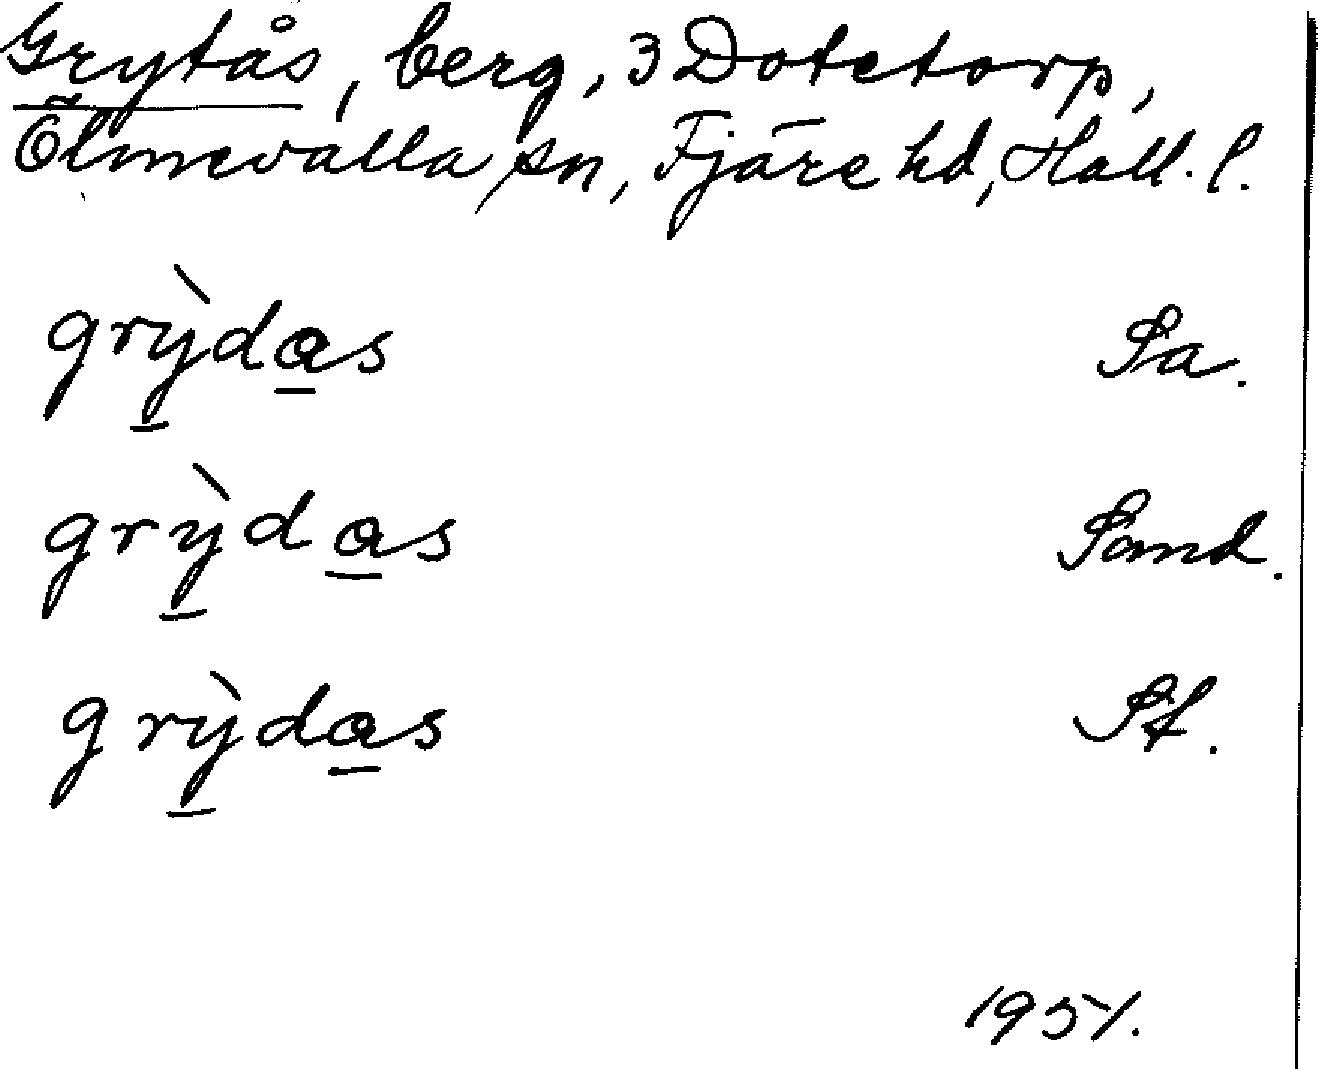 Grytås, berg, 3 Dotetorp,
Ölmevalla sn, Fjäre hd, Hall. l.
grỳdas Sa.
grỳdas Sand.
grỳdas St.
1951.